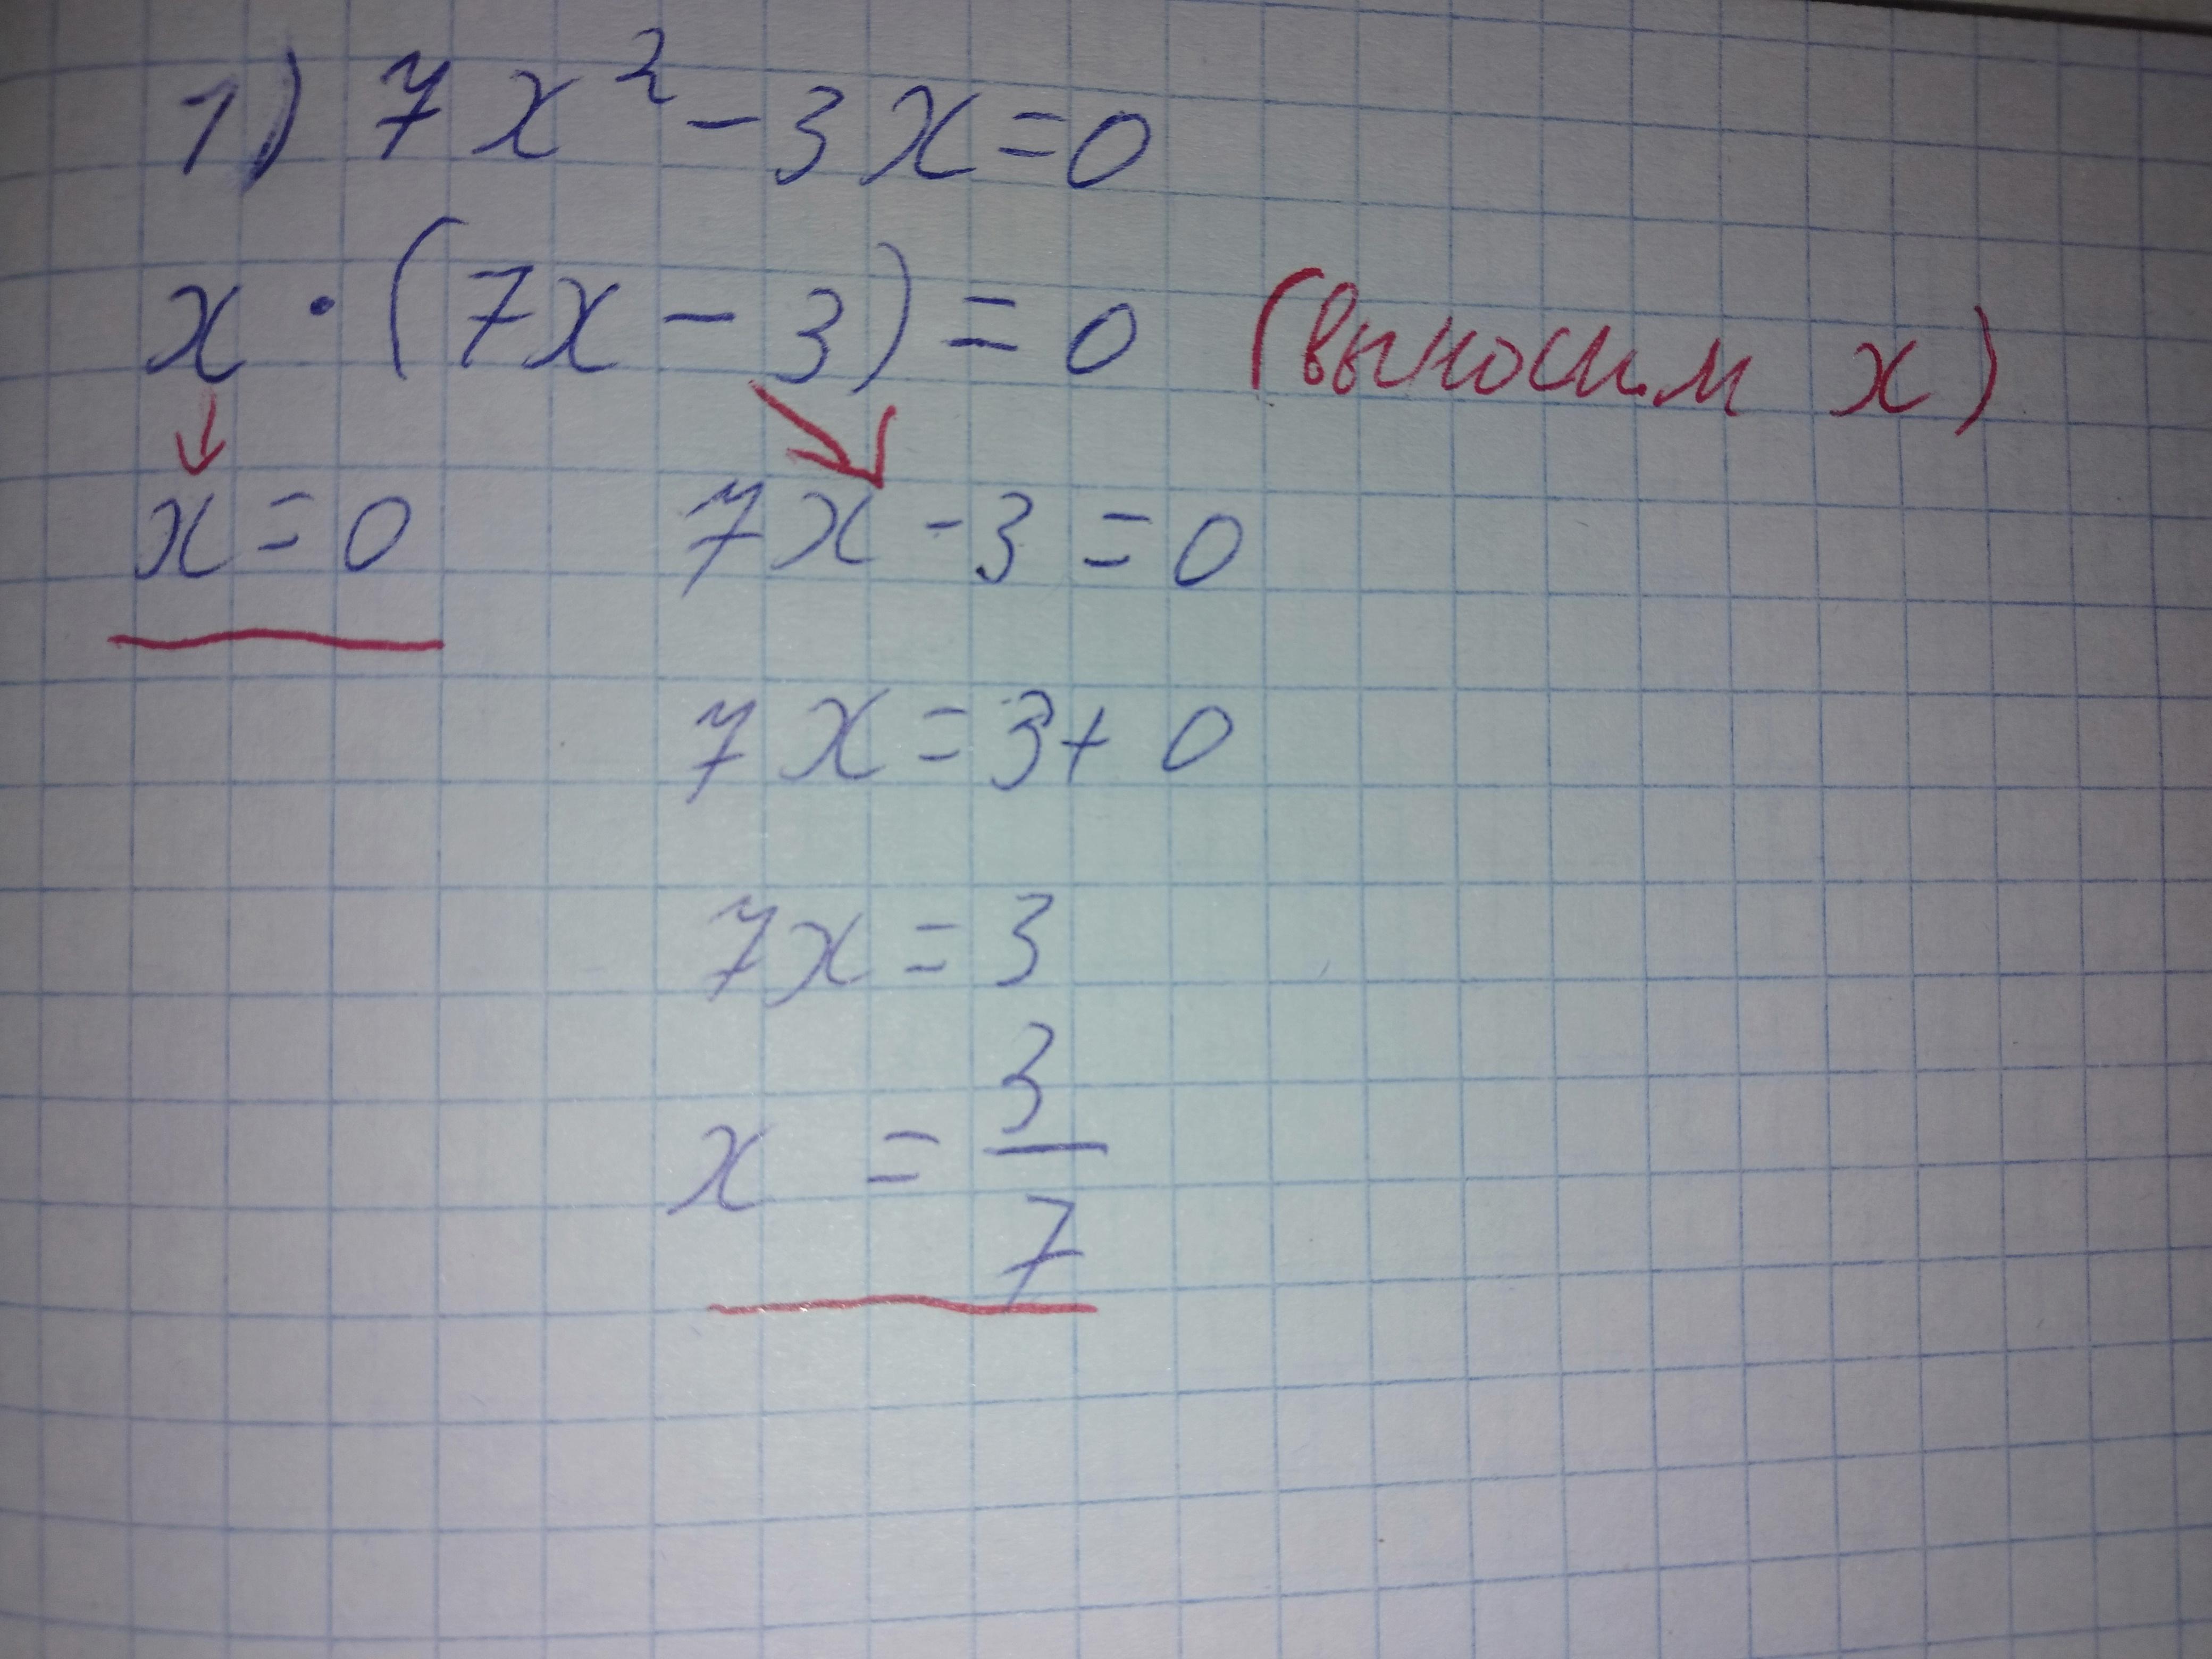 1) 7x² - 3x = 0
x · (7x - 3) = 0 (выносим x)
x = 0 7x - 3 = 0
7x = 3 + 0
7x = 3
x = 3/7